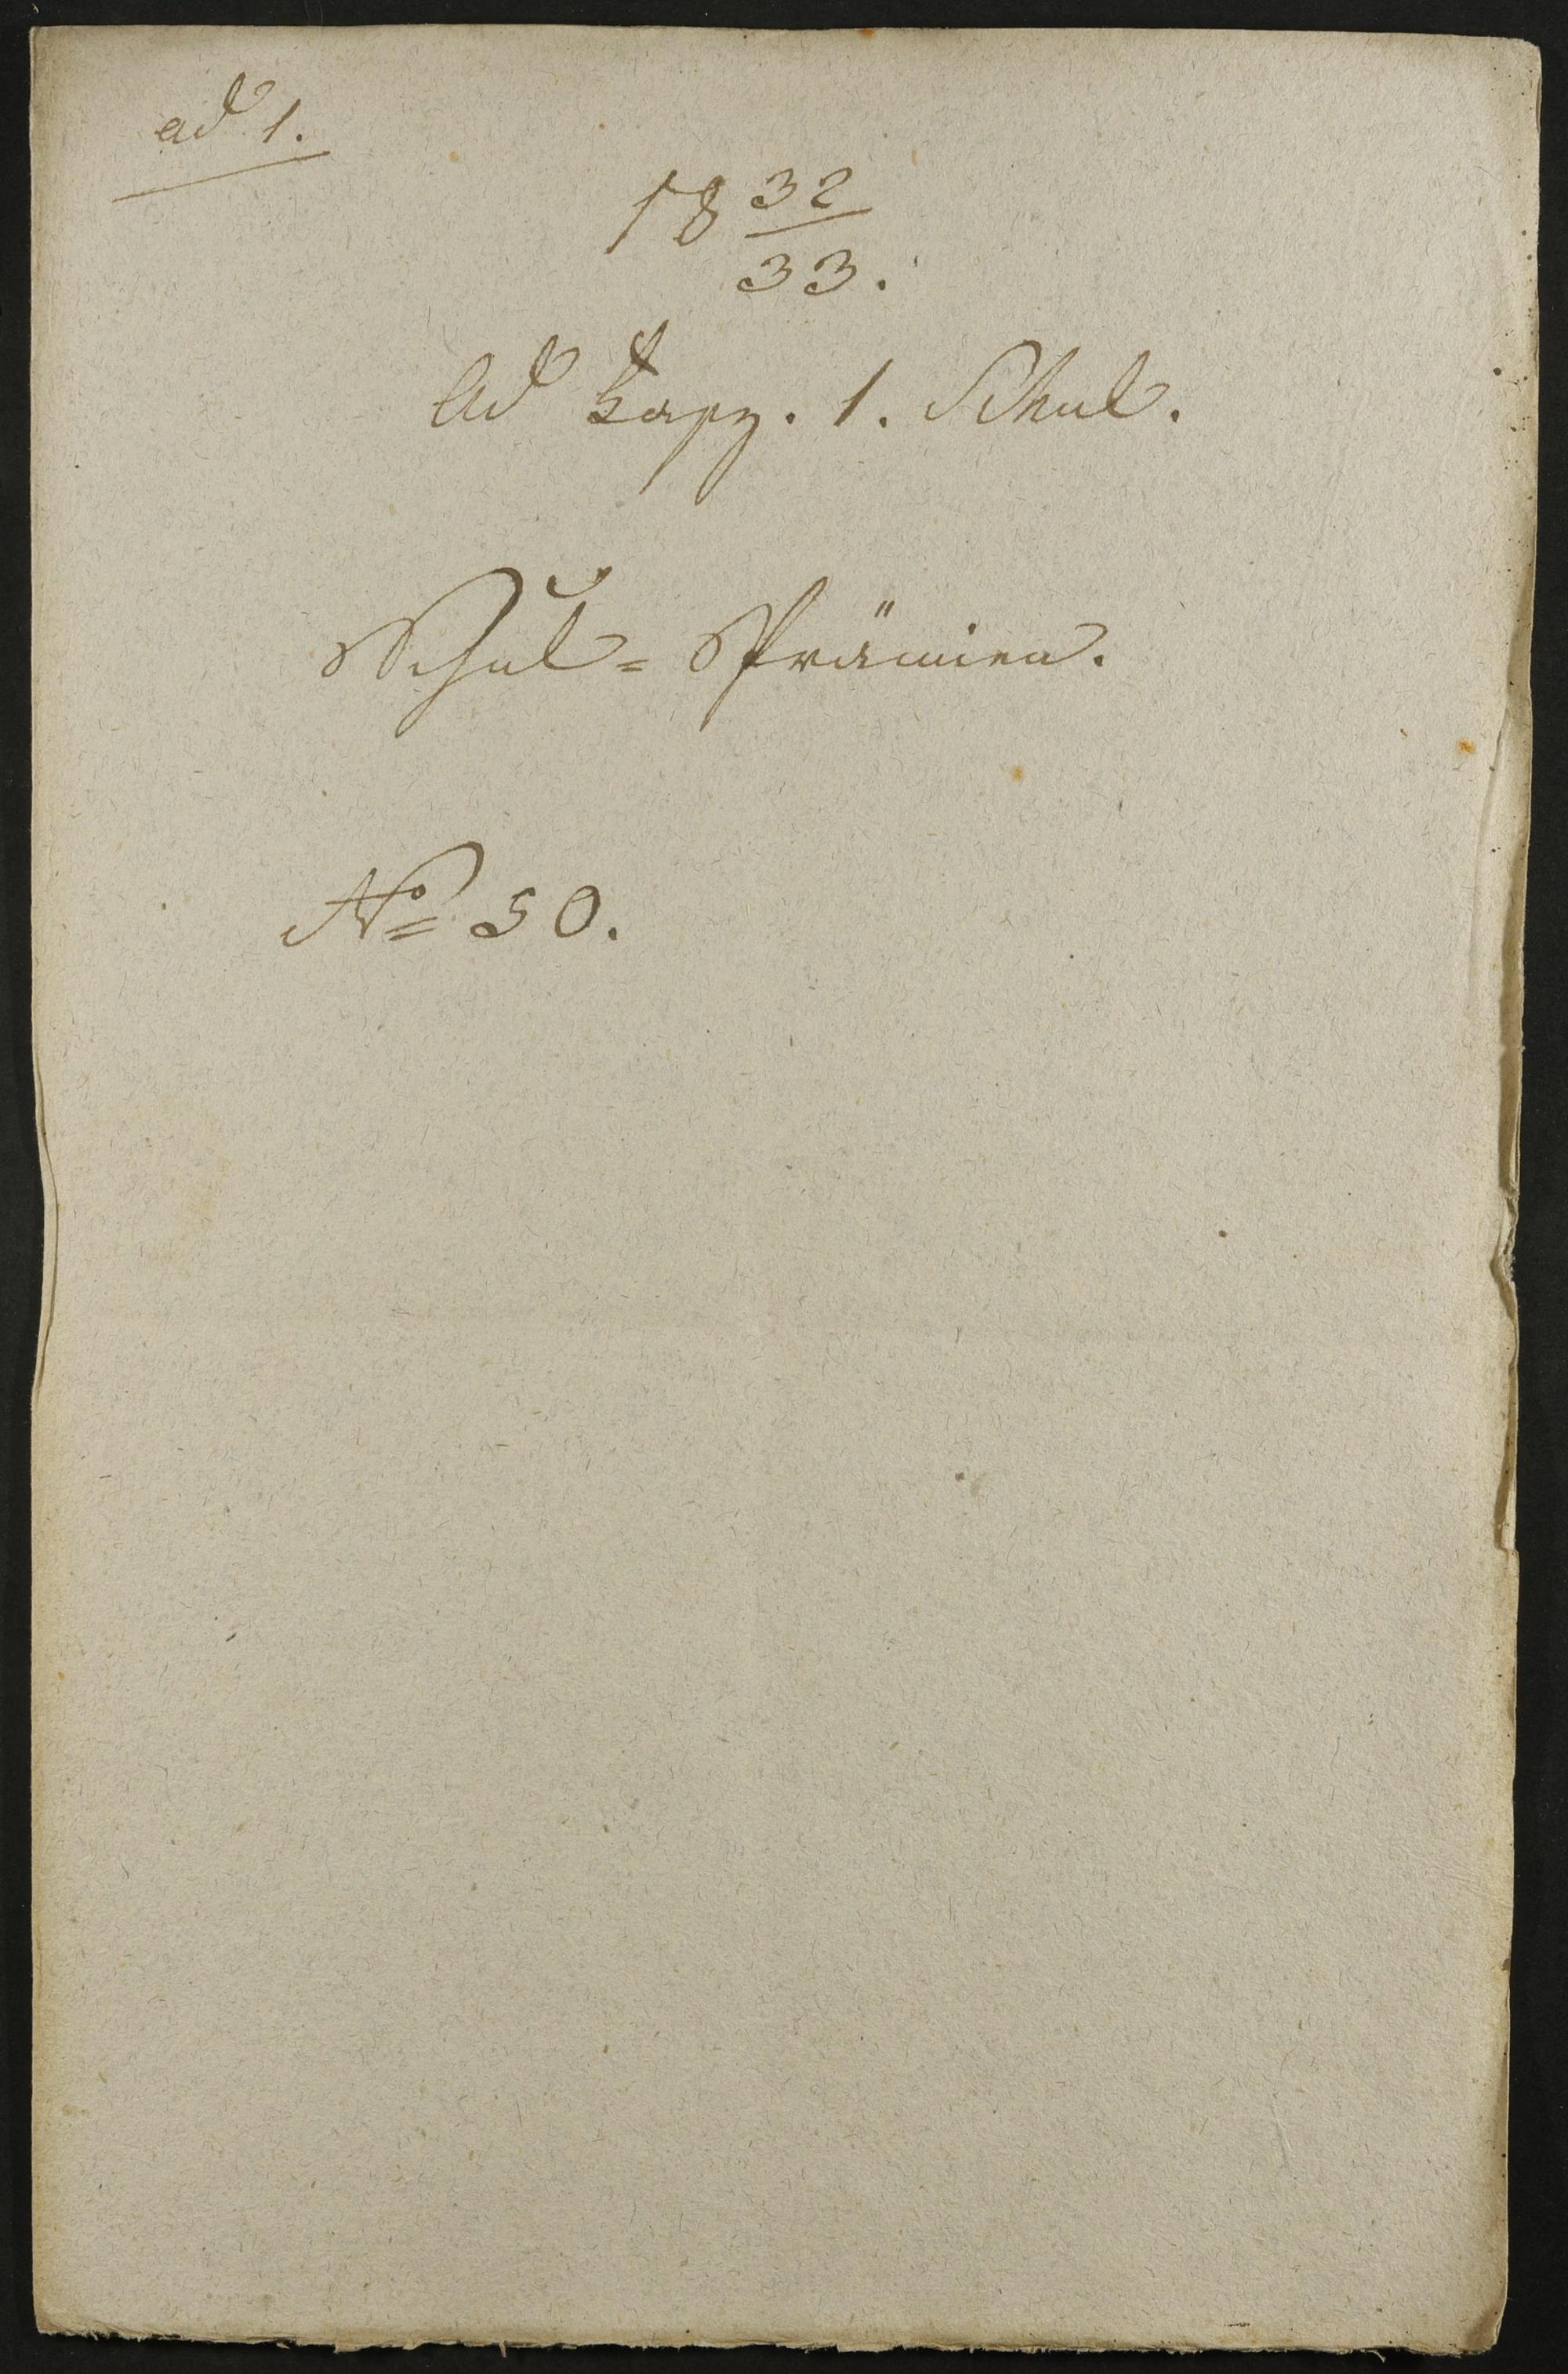 ad 1.
18 32/33.
Ad Kapz. 1. Schul.
Schul = Prämien.
No 50.